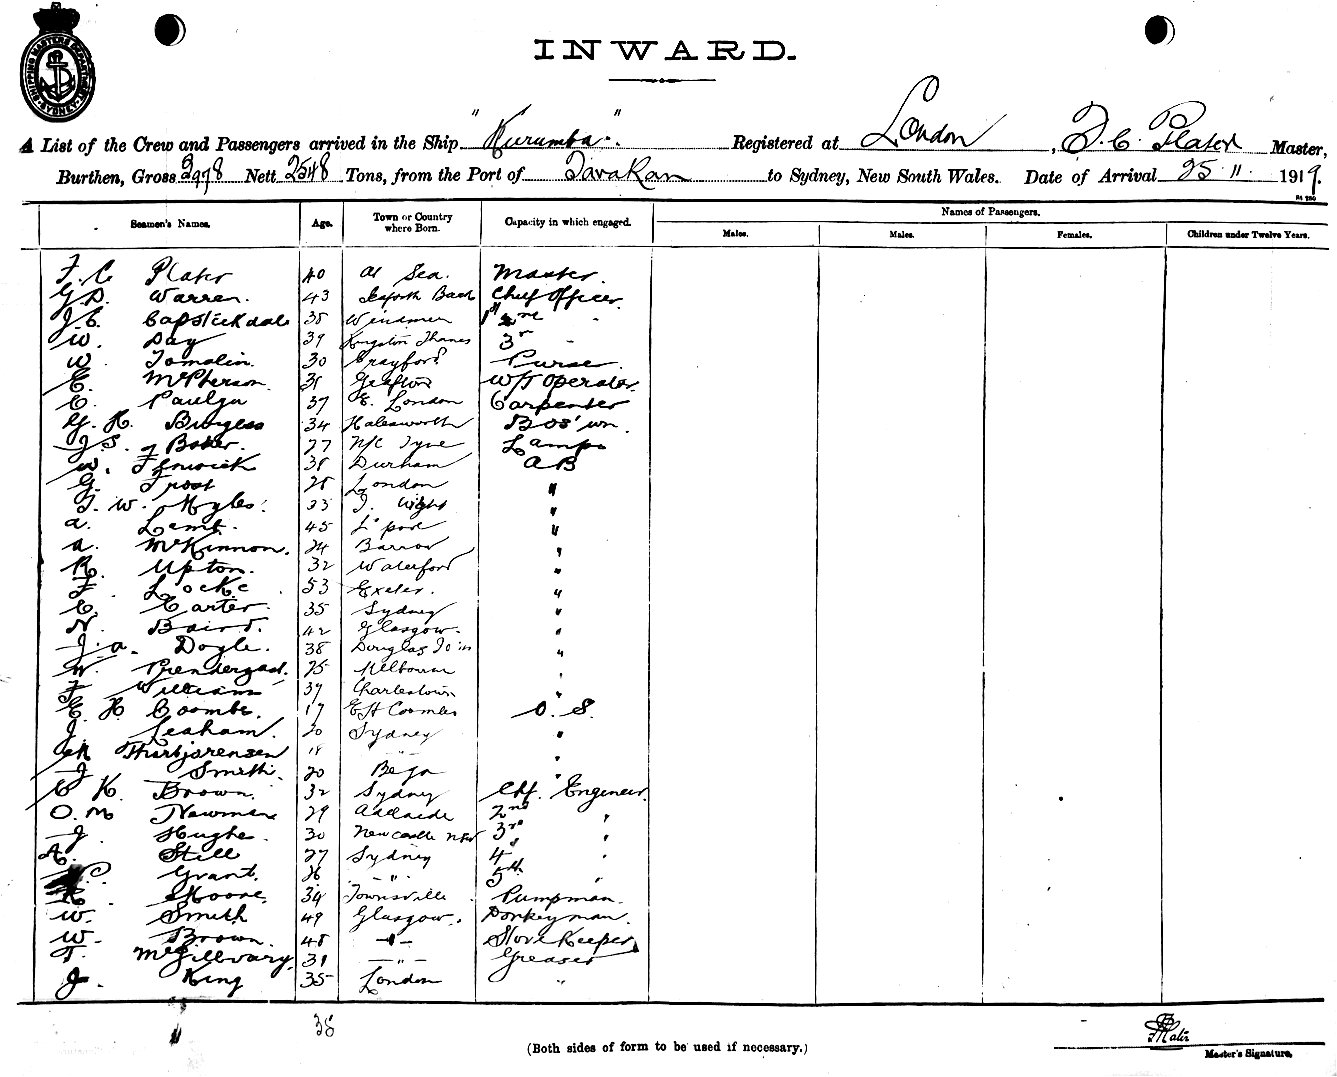 INWARD.
A List of the Crew and Passengers arrived in the Ship "Kurumba". Registered at London, F. C. Plater Master,
Burthen, Gross 3978 Nett 2548 Tons, from the Port of Tarakan to Sydney, New South Wales. Date of Arrival 25 11 1919.
Names of Passengers.
Seamen's Names. Age. Town or Country where Born. Capacity in which engaged. Males. Males. Females. Children under Twelve Years.
F. C. Plater 40 at Sea. Master.
G. D. Warren. 43 Chief Officer
J. C. Capstickdale 38
W. Day 39 Kingston Thames 3r
W. Tomalin. 30 Crayford Purser
E. McPherson 31 Grafton W/T Operator
37 E. London Carpenter
G. H. Burgess 34 Halesworth Bos'wn.
J. S. Baker. 27 N/C Tyne Lamps
W. Fenwick 38 Durham AB
G. Frost 28 London "
W. Myles. 33 I. Wight "
A. 45 L'pool "
A. McKinnon. 24 Barrow "
R. Upton. 32 Waterford "
F. Locke 53 Exeter. "
C. Carter. 35 Sydney "
N. Baird. 42 Glasgow. "
J. A. Doyle. 38 Douglas "
W. Prendergast. 25 Melbourne "
F. Williams 39 Charlestown "
E. H. Coombe. 17 O. S.
J. Leaham. 20 Sydney "
Thorbjorensen 18 " "
J. Smith. 20 Bega "
C. K. Brown. 32 Sydney Chf. Engineer.
O. M. Newman 29 Adelaide 2nd "
J. Hughe. 30 Newcastle NSW 3rd "
A. Still 27 Sydney 4 "
Grant. 26 " 5th "
R. Moore. 34 Townsville Pumpman.
W. Smith 49 Glasgow. Donkeyman.
W. Brown. 48 " Store Keeper
T. McGillvary. 31 " Greaser
J. King 35 London "
38
(Both sides of form to be used if necessary.)
Master's Signature.